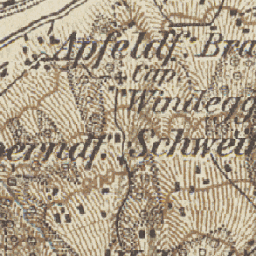 Apfeldf Bra
Windegg
erndf Schwei